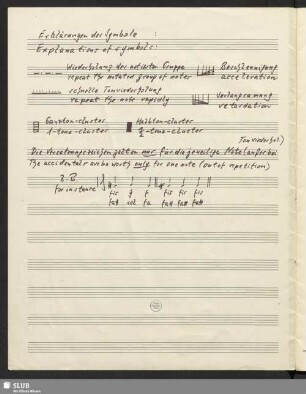 Erklärungen der Symbole :
Explanations of symbols:
Wiederholung der notierten Gruppe
repeat the notated group of notes
Beschleunigung
acceleration
schnelle Tonwiederholung
repeat the note rapidly
Verlangsamung
retardation
Ganzton-cluster
1-tone-cluster
Halbton-cluster
½-tone-cluster
Tonwiederhol.)
Die Versetzungszeichen gelten nur für die jeweilige Note (außer bei
The accidentals are be worth only for one note (out of repetition)
z.B.
for instance
fis g f fis fis fis
fa# sol fa fa# fa# fa#
SLUB